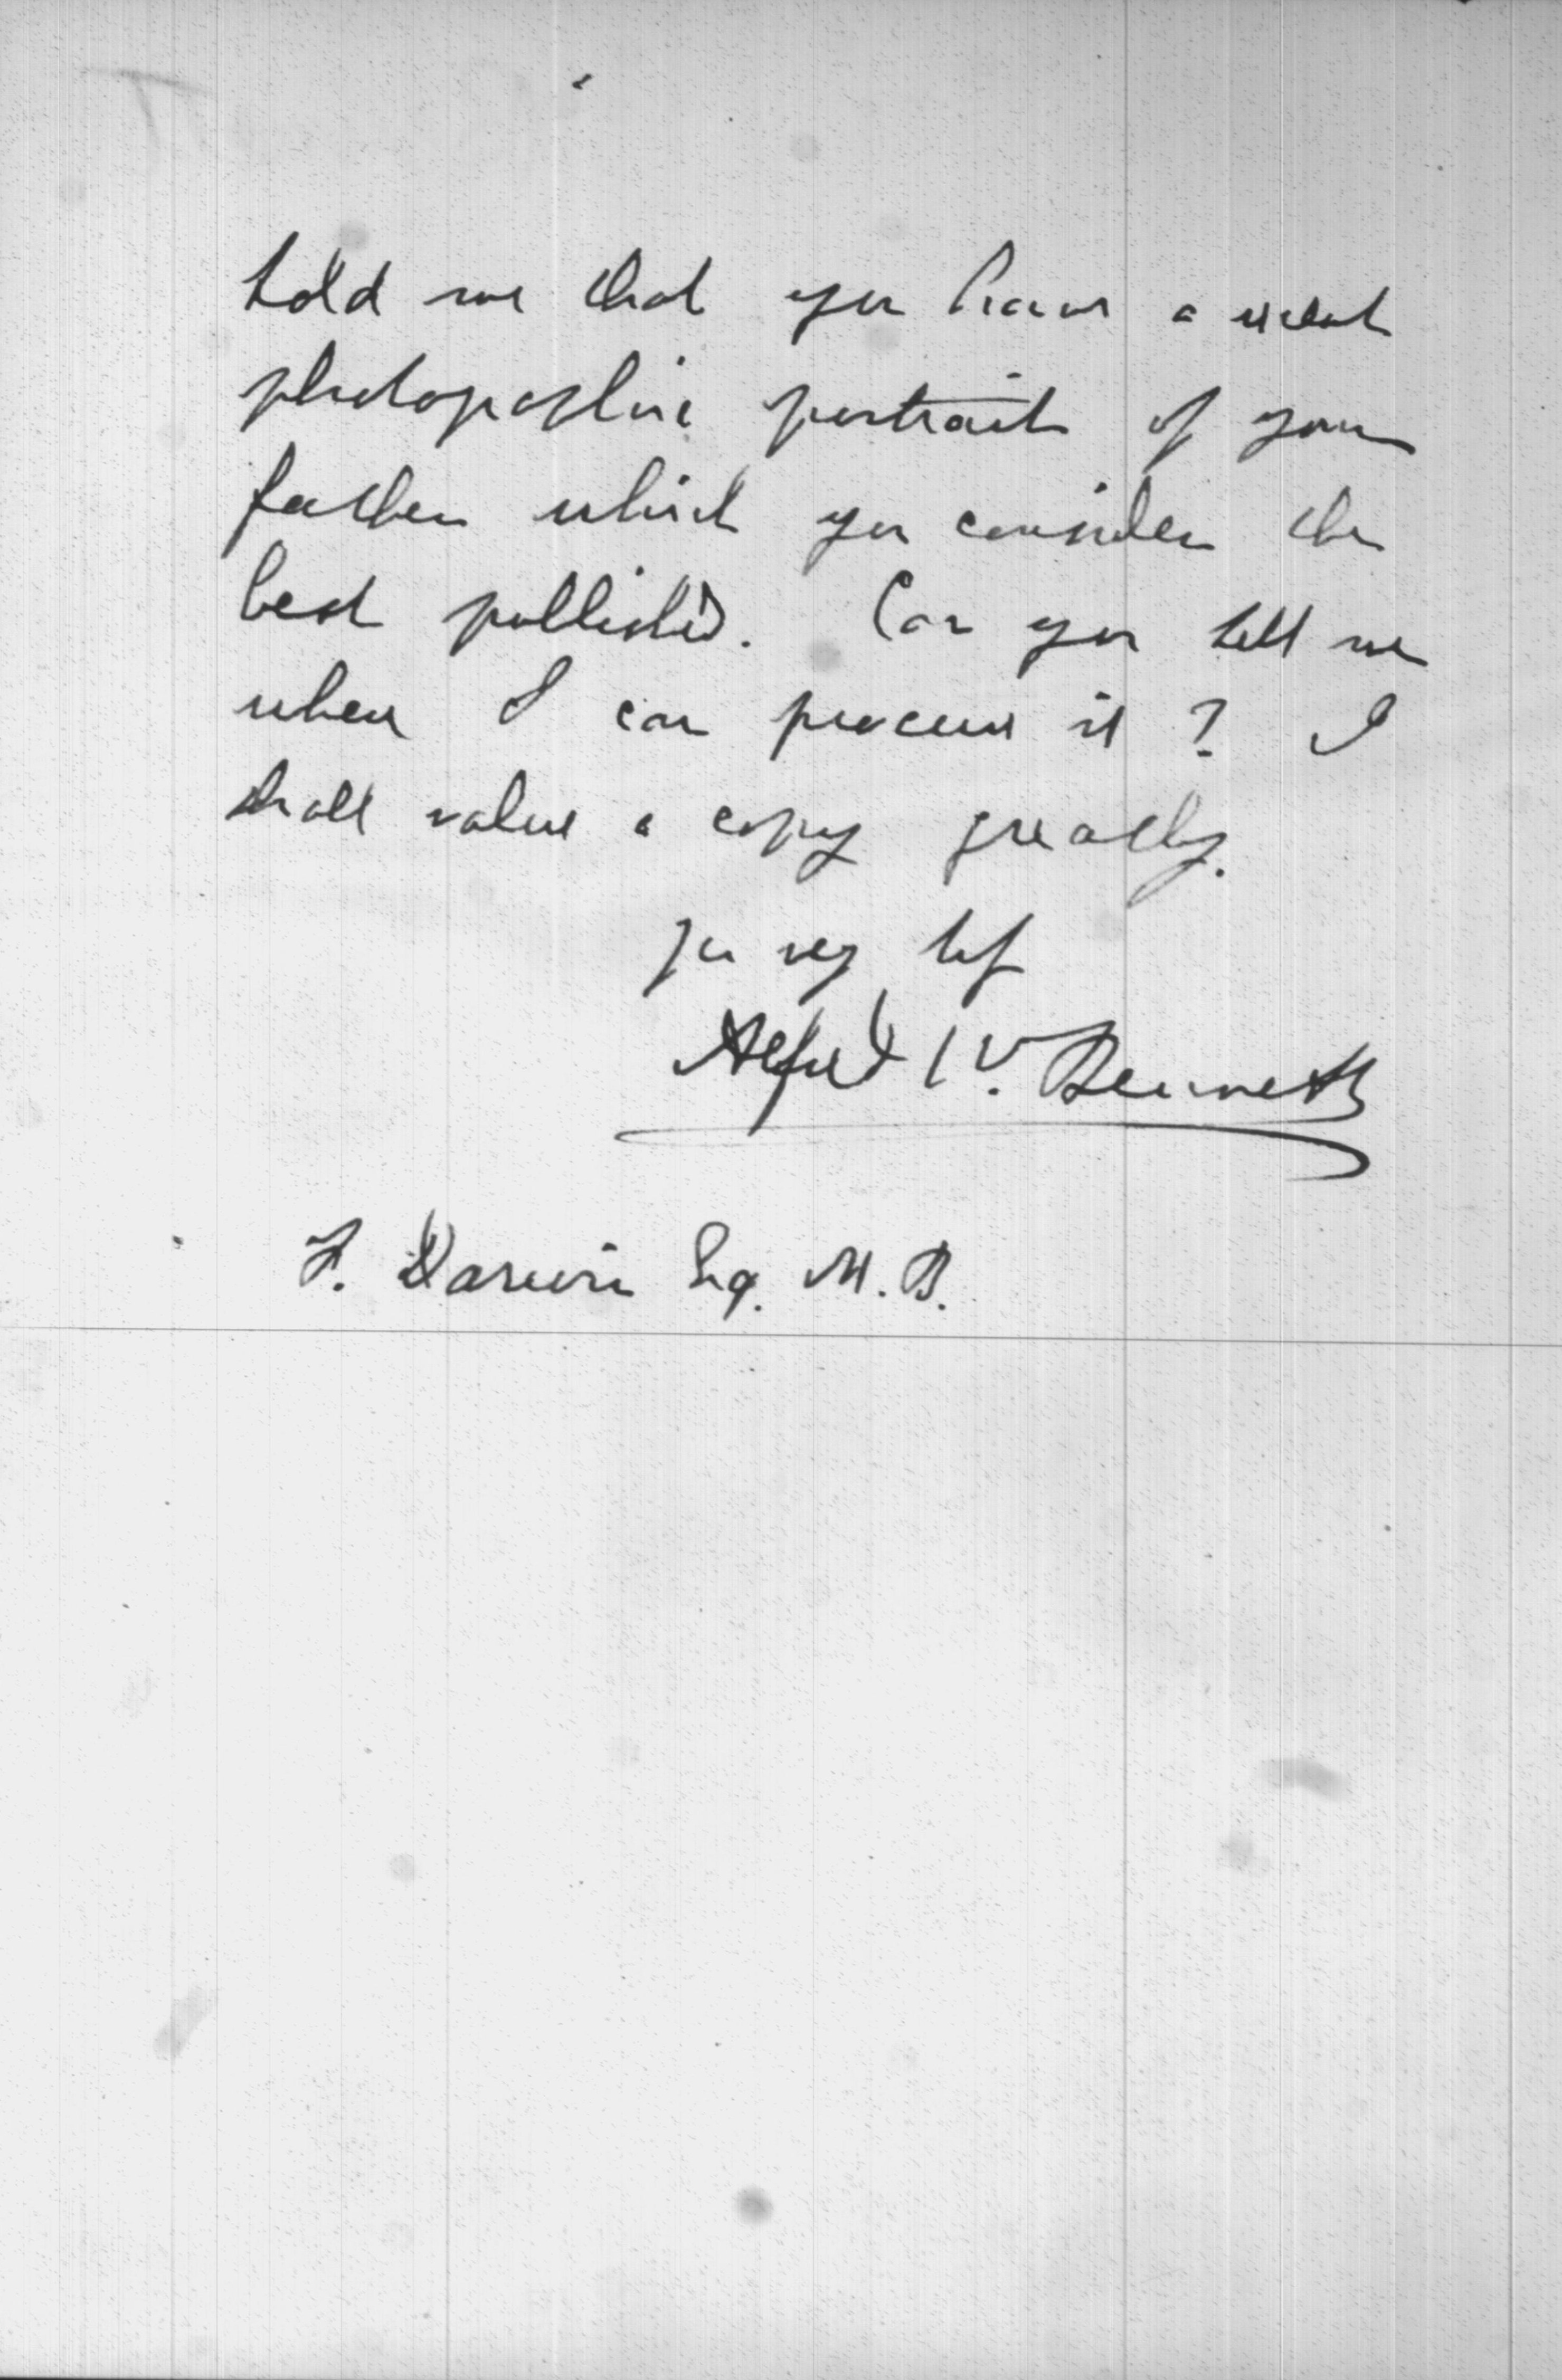 told me that you have a recent
photographic portrait of your
father which you consider the
best publishd. Can you tell me
where I can procure it? I
shall value a copy greatly.
Yrs very try
Alfred W. Bennett
F. Darwin Esq. M.B.